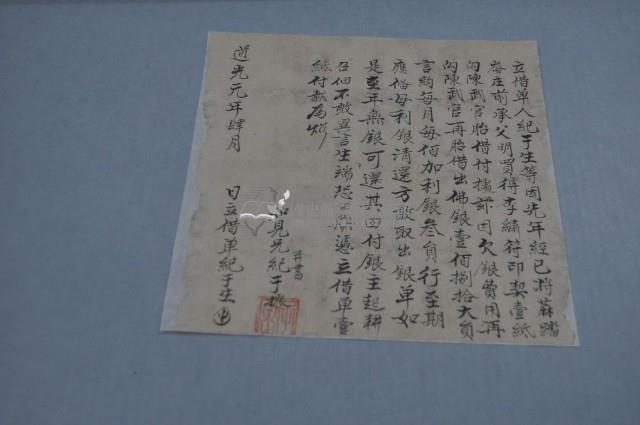 立借单人紀于生等因先年經已將蔴踏
庄前承父明買得李繡符印契壹紙
向陳武官胎借付據訖因欠銀費用再
向陳武官再胎借出佛銀壹佰捌拾大員
言約每月每佰加利銀叁員行至期
應備母利銀清還方敢取出銀单如
是至年無銀可還其田付銀主起耕
召佃不敢異言生端恐口無憑立借单壹
紙付執為炤
并書
見兄紀于
道光元年肆月 日立借单紀于生